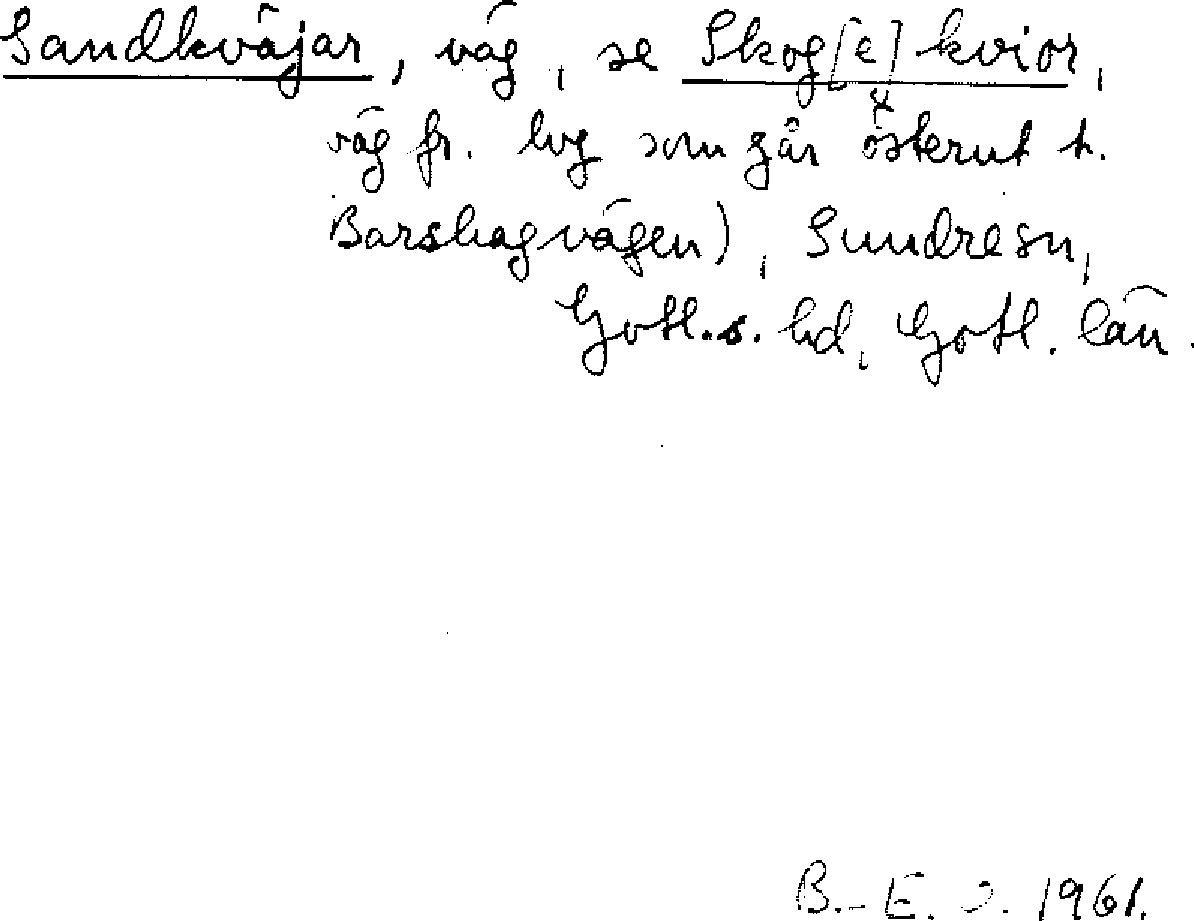 Sandkväjar, väg, se Skog[e]kvior,
väg fr. lvg som går österut t.
Barshagvägen), Sundresn,
Gotl.s. hd, Gotl. län.
B.-E. J. 1961.